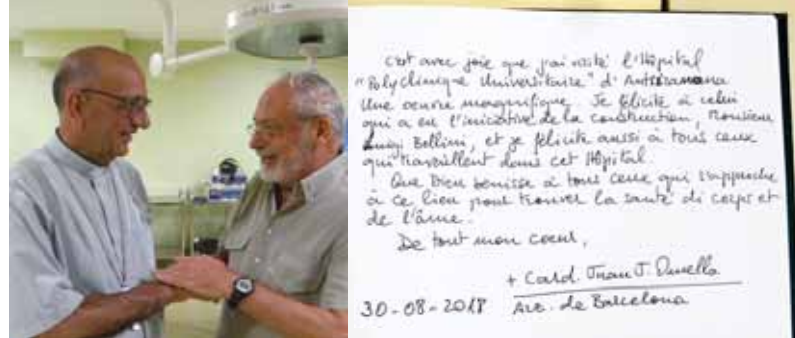 c'est avec joie que j'ai visité l'Hôpital
"Polyclinique Universitaire" d'Antsiranana
Une oeuvre magnifique. Je félicite à celui
qui a eu l'iniciative de la construction, Monsieur
Luigi Bellini, et je félicite aussi à tous ceux
qui travaillent dans cet Hôpital
Que Dieu benisse à tous ceux qui s'approche
à ce lieu pour trouver la santé di corps et
de l'âme.
De tout mon coeur,
+ Card. Juan J. Omella
30-08-2018 Arz. de Barcelona